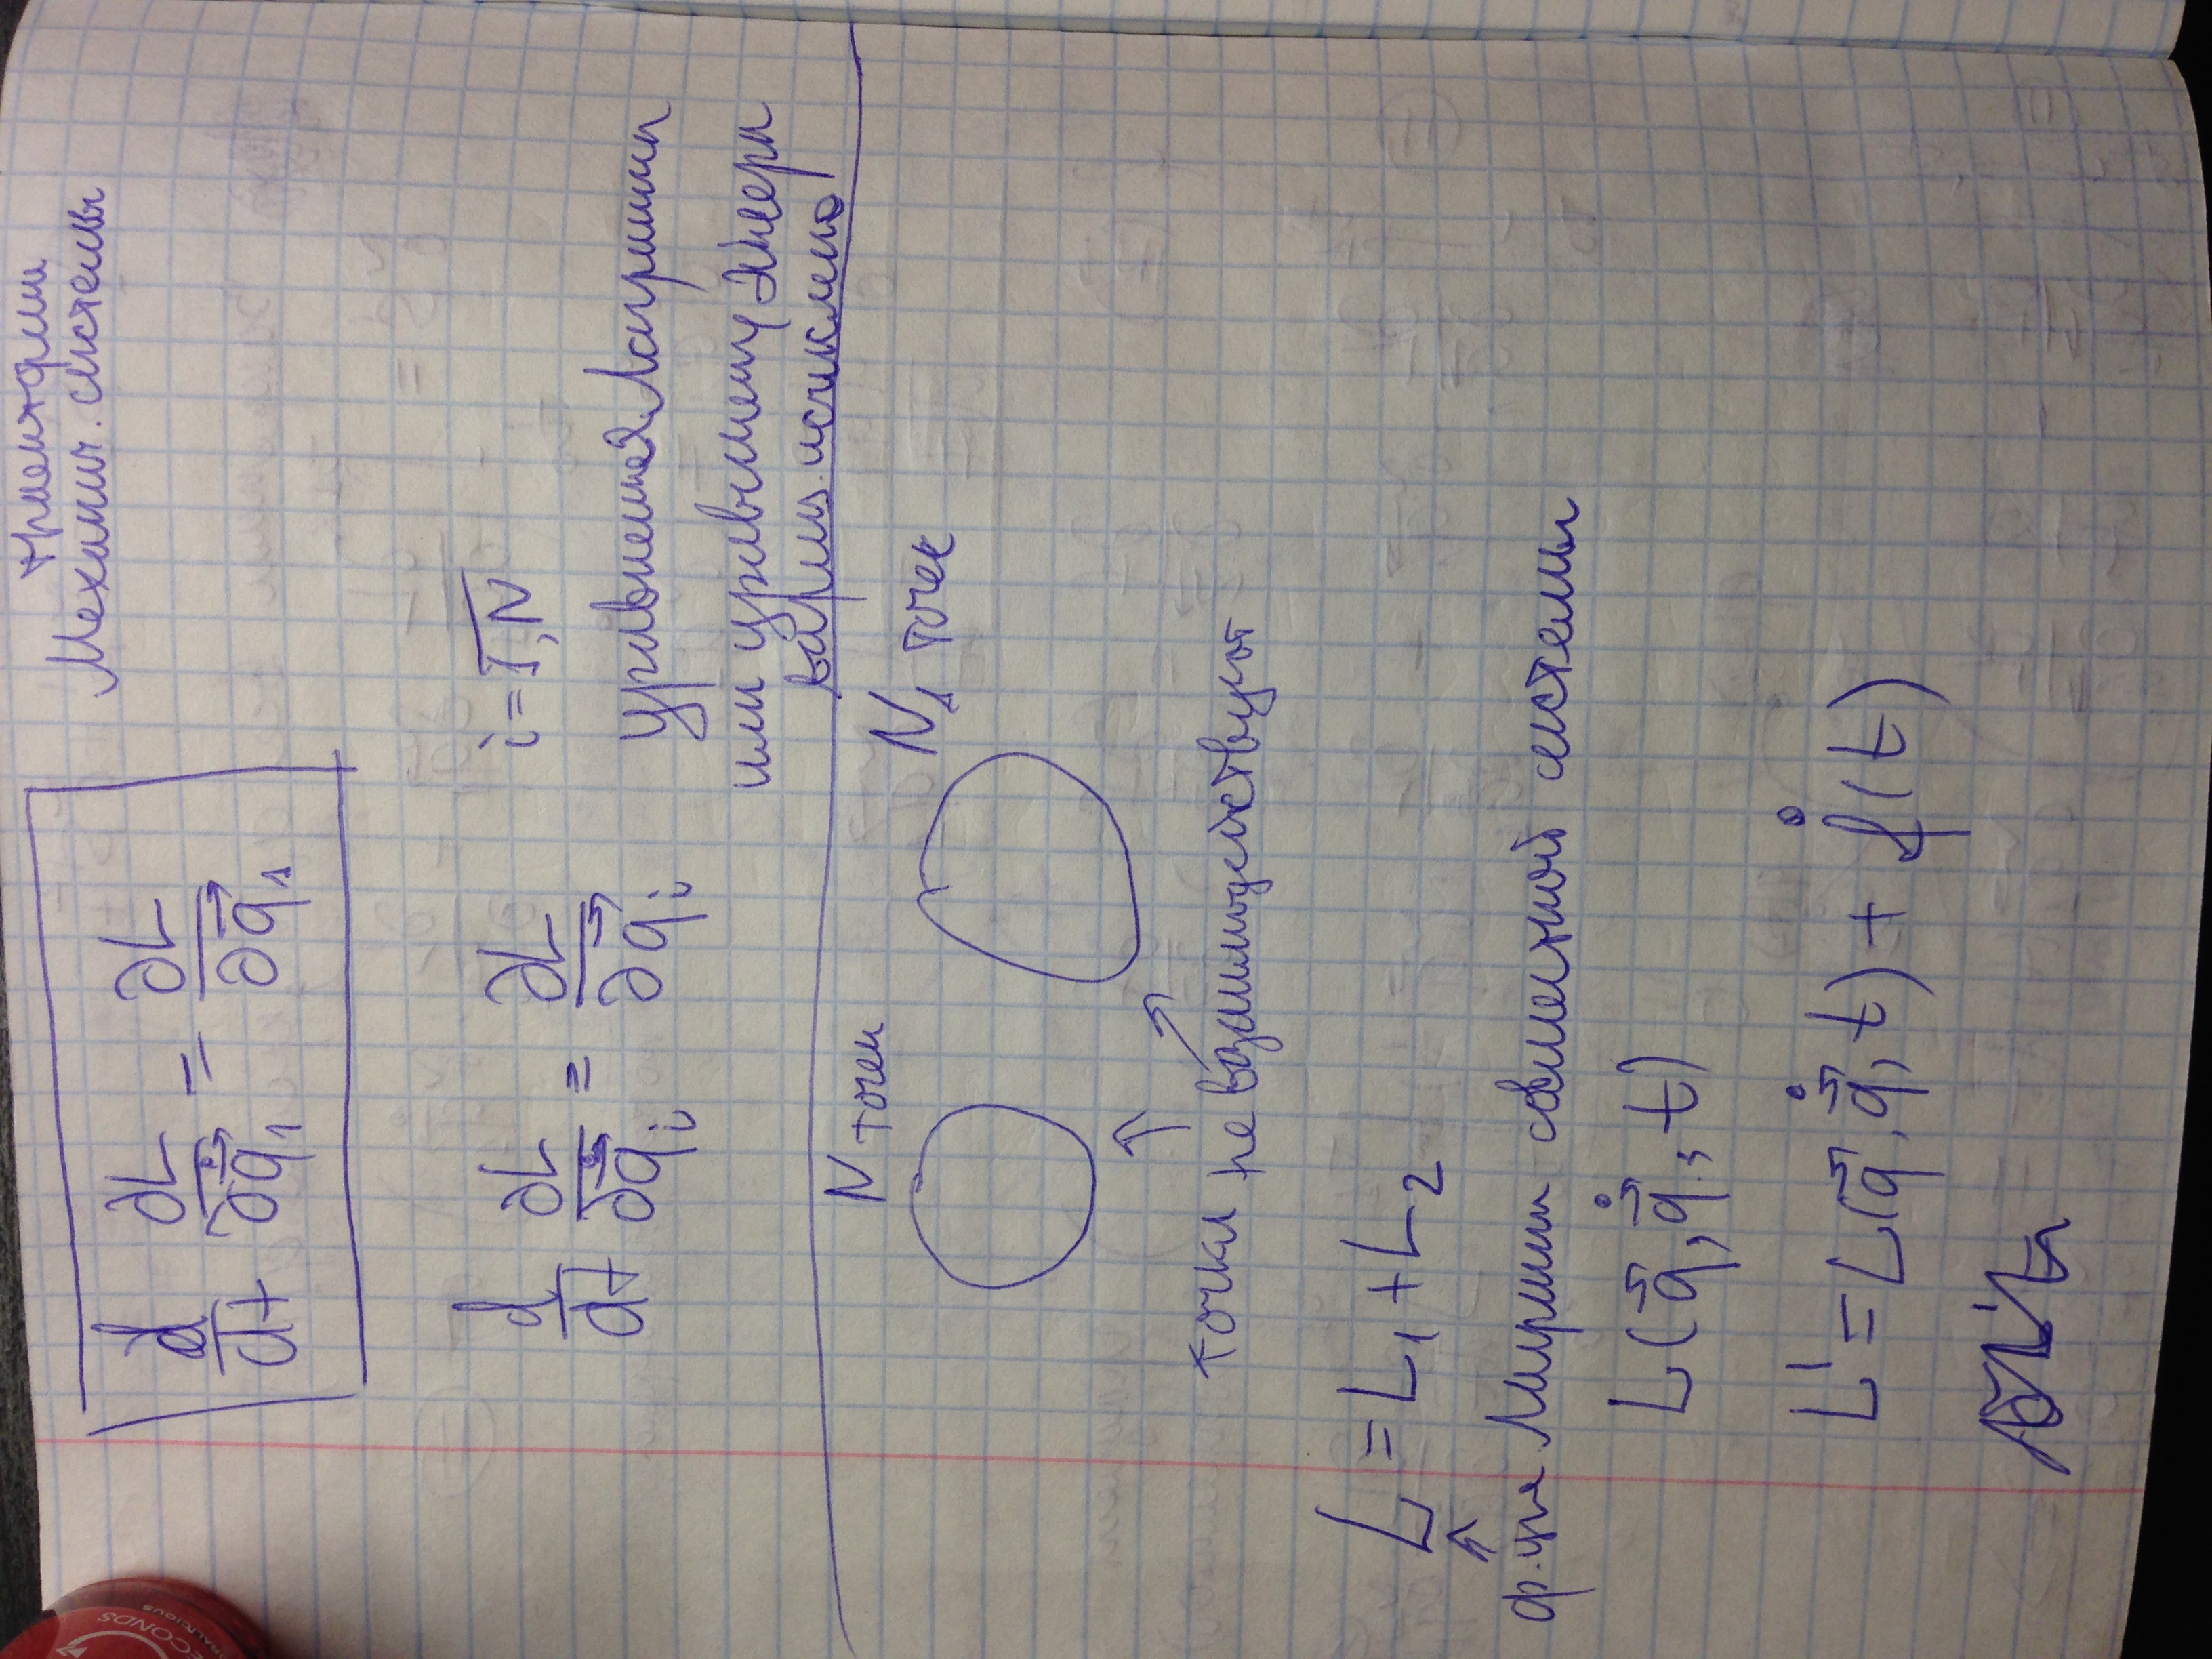 траектории
Механич. системы
d/dt ∂L/∂q̇⃗₁ = ∂L/∂q⃗₁
d/dt ∂L/∂q̇⃗ᵢ = ∂L/∂q⃗ᵢ
i = 1,N
уравнения Лагранжа
или уравнению Эйлера
вариац. исчислено
N точек
N₁ точек
точки не взаимодействуют
L = L₁ + L₂
ф-ция Лагранжа совместной системы
L(q⃗, q̇⃗, t)
L' = L(q⃗, q̇⃗, t) + ḟ(t)
SECONDS